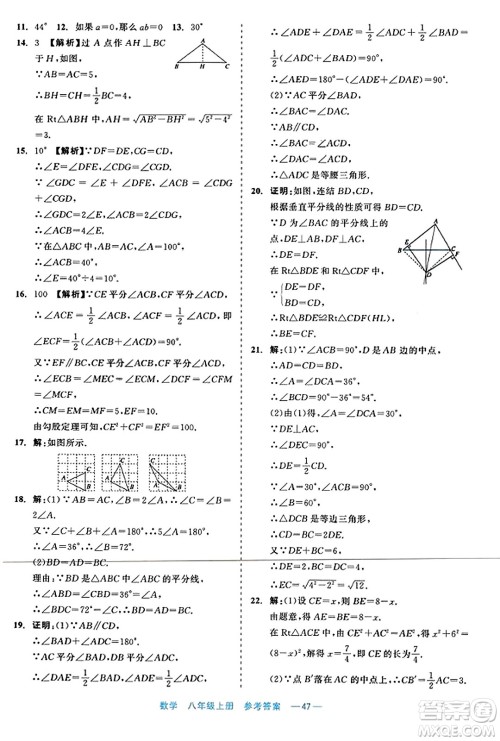 11. 44° 12. 如果 a=0,那么 ab=0 13. 30°
14. 3 【解析】过 A 点作 AH⊥BC
于 H,如图,
∵AB=AC=5,
∴BH=CH=1/2BC=4,
在 Rt△ABH 中,AH=√(AB²-BH²)=√(5²-4²)=3.
15. 10° 【解析】∵DE=DF,CG=CD,
∴∠E=∠DFE,∠GDC=∠CGD.
∵∠GDC=∠E+∠DFE,∠ACB=∠CDG+∠CGD,
∴∠GDC=2∠E,∠ACB=2∠CDG,
∴∠ACB=4∠E.
∵在△ABC 中,∠A=100°,AB=AC,
∴∠ACB=40°,
∴∠E=40°÷4=10°.
16. 100 【解析】∵CE平分∠ACB,CF平分∠ACD,
∴∠ACE=1/2∠ACB,∠ACF=1/2∠ACD,即
∠ECF=1/2(∠ACB+∠ACD)=90°.
又∵EF∥BC,CE平分∠ACB,CF平分∠ACD,
∴∠ECB=∠MEC=∠ECM,∠DCF=∠CFM=
∠MCF,
∴CM=EM=MF=5,EF=10.
由勾股定理可知,CE²+CF²=EF²=100.
17. 解:如图所示.
18. 解:(1)∵AB=AC,∠B=2∠A,∴∠C=∠B=
2∠A.
又∵∠C+∠B+∠A=5∠A=180°,
∴∠A=36°,∴∠B=72°.
(2)BD=AD=BC.
理由:∵BD是△ABC中的平分线,
∴∠ABD=∠CBD=36°,∠BDC=72°,
∴BD=AD,BD=BC,∴BD=AD=BC.
19. 证明:(1)∵AB∥CD,
∴∠BAC+∠ACD=180°.
∵AE平分∠BAC,CE平分∠ACD,
∴∠EAC=1/2∠BAC,∠ACE=1/2∠ACD,
∴∠EAC+∠ACE=1/2(∠BAC+∠ACD)=90°,
∴∠AEC=180°-(∠EAC+∠ACE)=90°.
(2)∵AD平分∠BAC,∴∠CAD=∠BAD.
∵AB∥CD,∴∠BAD=∠CDA,
∴∠CAD=∠CDA,∴AC=CD,
∴△ADC是等腰三角形.
20. 证明:如图,连结 BD,CD,
根据垂直平分线的性质,
∵D为BC的平分线上的点,
∴BD=CD.
∴DE=DF.
在 Rt△BDE和Rt△CDF中,
∵{BD=CD,
DE=DF,
∴Rt△BDE≌Rt△CDF(HL),
∴BE=CF.
21. 解:(1)∵∠ACB=90°,点D是AB边的中点,
∴AD=CD=BD,
∴∠A=∠DCA=36°,
∴∠DCB=90°-36°=54°.
(2)由(1)得,∠A=∠DCA.
∵∠A=1/2∠CDE,∴∠DCA=1/2∠CDE.
又∵∠DCA+∠CDE=90°,∴∠DCA=30°,
∴DE=1/2CD.
又∵CD=BD=4,
∴DE=2,
∴EC=√(4²-2²)=√12.
22. 解:(1)设CE=x,则BE=8-x.
由题意,得AE=BE=8-x.
在Rt△ACE中,由勾股定理得x²+6²=
(8-x)²,解得x=7/4,即CE的长为7/4.
(2)∵点B′落在AC的中点,
∴CB′=1/2AC=3.
数学 八年级上册 参考答案 —47—